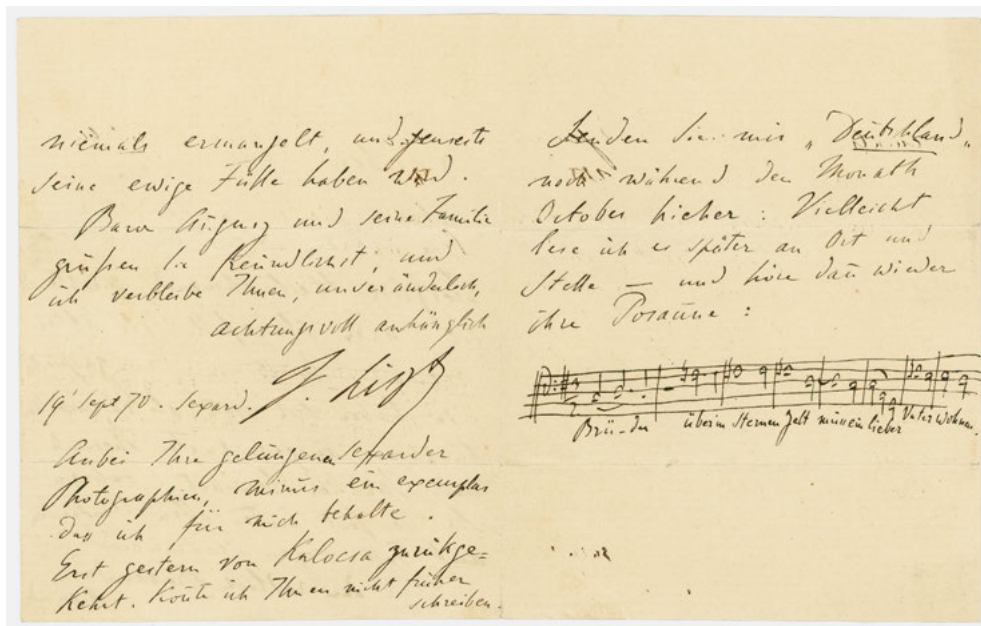 niemals ermangelt, und jenseits
seine ewige Fülle haben wird.
Baron Augusz und seine Familie
grüßen Sie freundlichst, und
ich verbleibe Ihnen, unveränderlich,
achtungsvoll anhänglich
F. Liszt
19t Sept 70. Sexard.
Anbei Ihre gelungenen Sexarder
Photographien, minus ein exemplar
das ich für mich behalte.
Erst gestern von Kalocsa zurükge=
kehrt. Konte ich Ihnen nicht früher
schreiben.
Senden Sie mir „Deutschland„
noch während den Monath
October hieher: Vielleicht
lese ich es später an Ort und
Stelle — und höre dan wieder
ihre Posaune:
Brü-der überm Sternen Zelt muss ein lieber Vater wohnen.